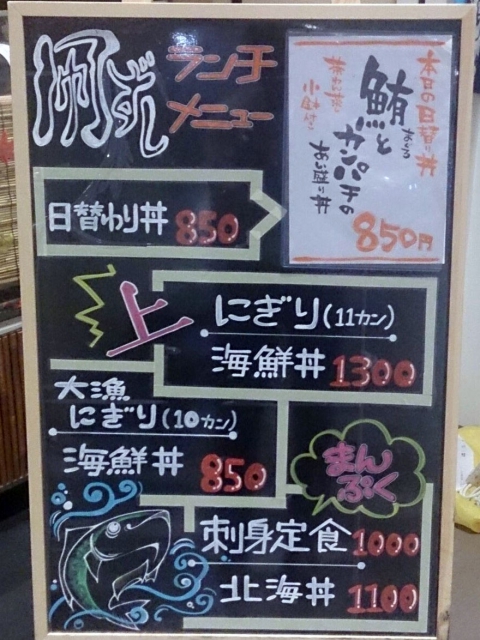 ランチ
メニュー
本日の日替り丼
まぐろ
鮪と
カンパチの
お造り丼
小鉢付
850円
日替わり丼 850
上
にぎり(11カン)
海鮮丼 1300
大漁
にぎり(10カン)
海鮮丼 850
まん
ぷく
刺身定食 1000
北海丼 1100